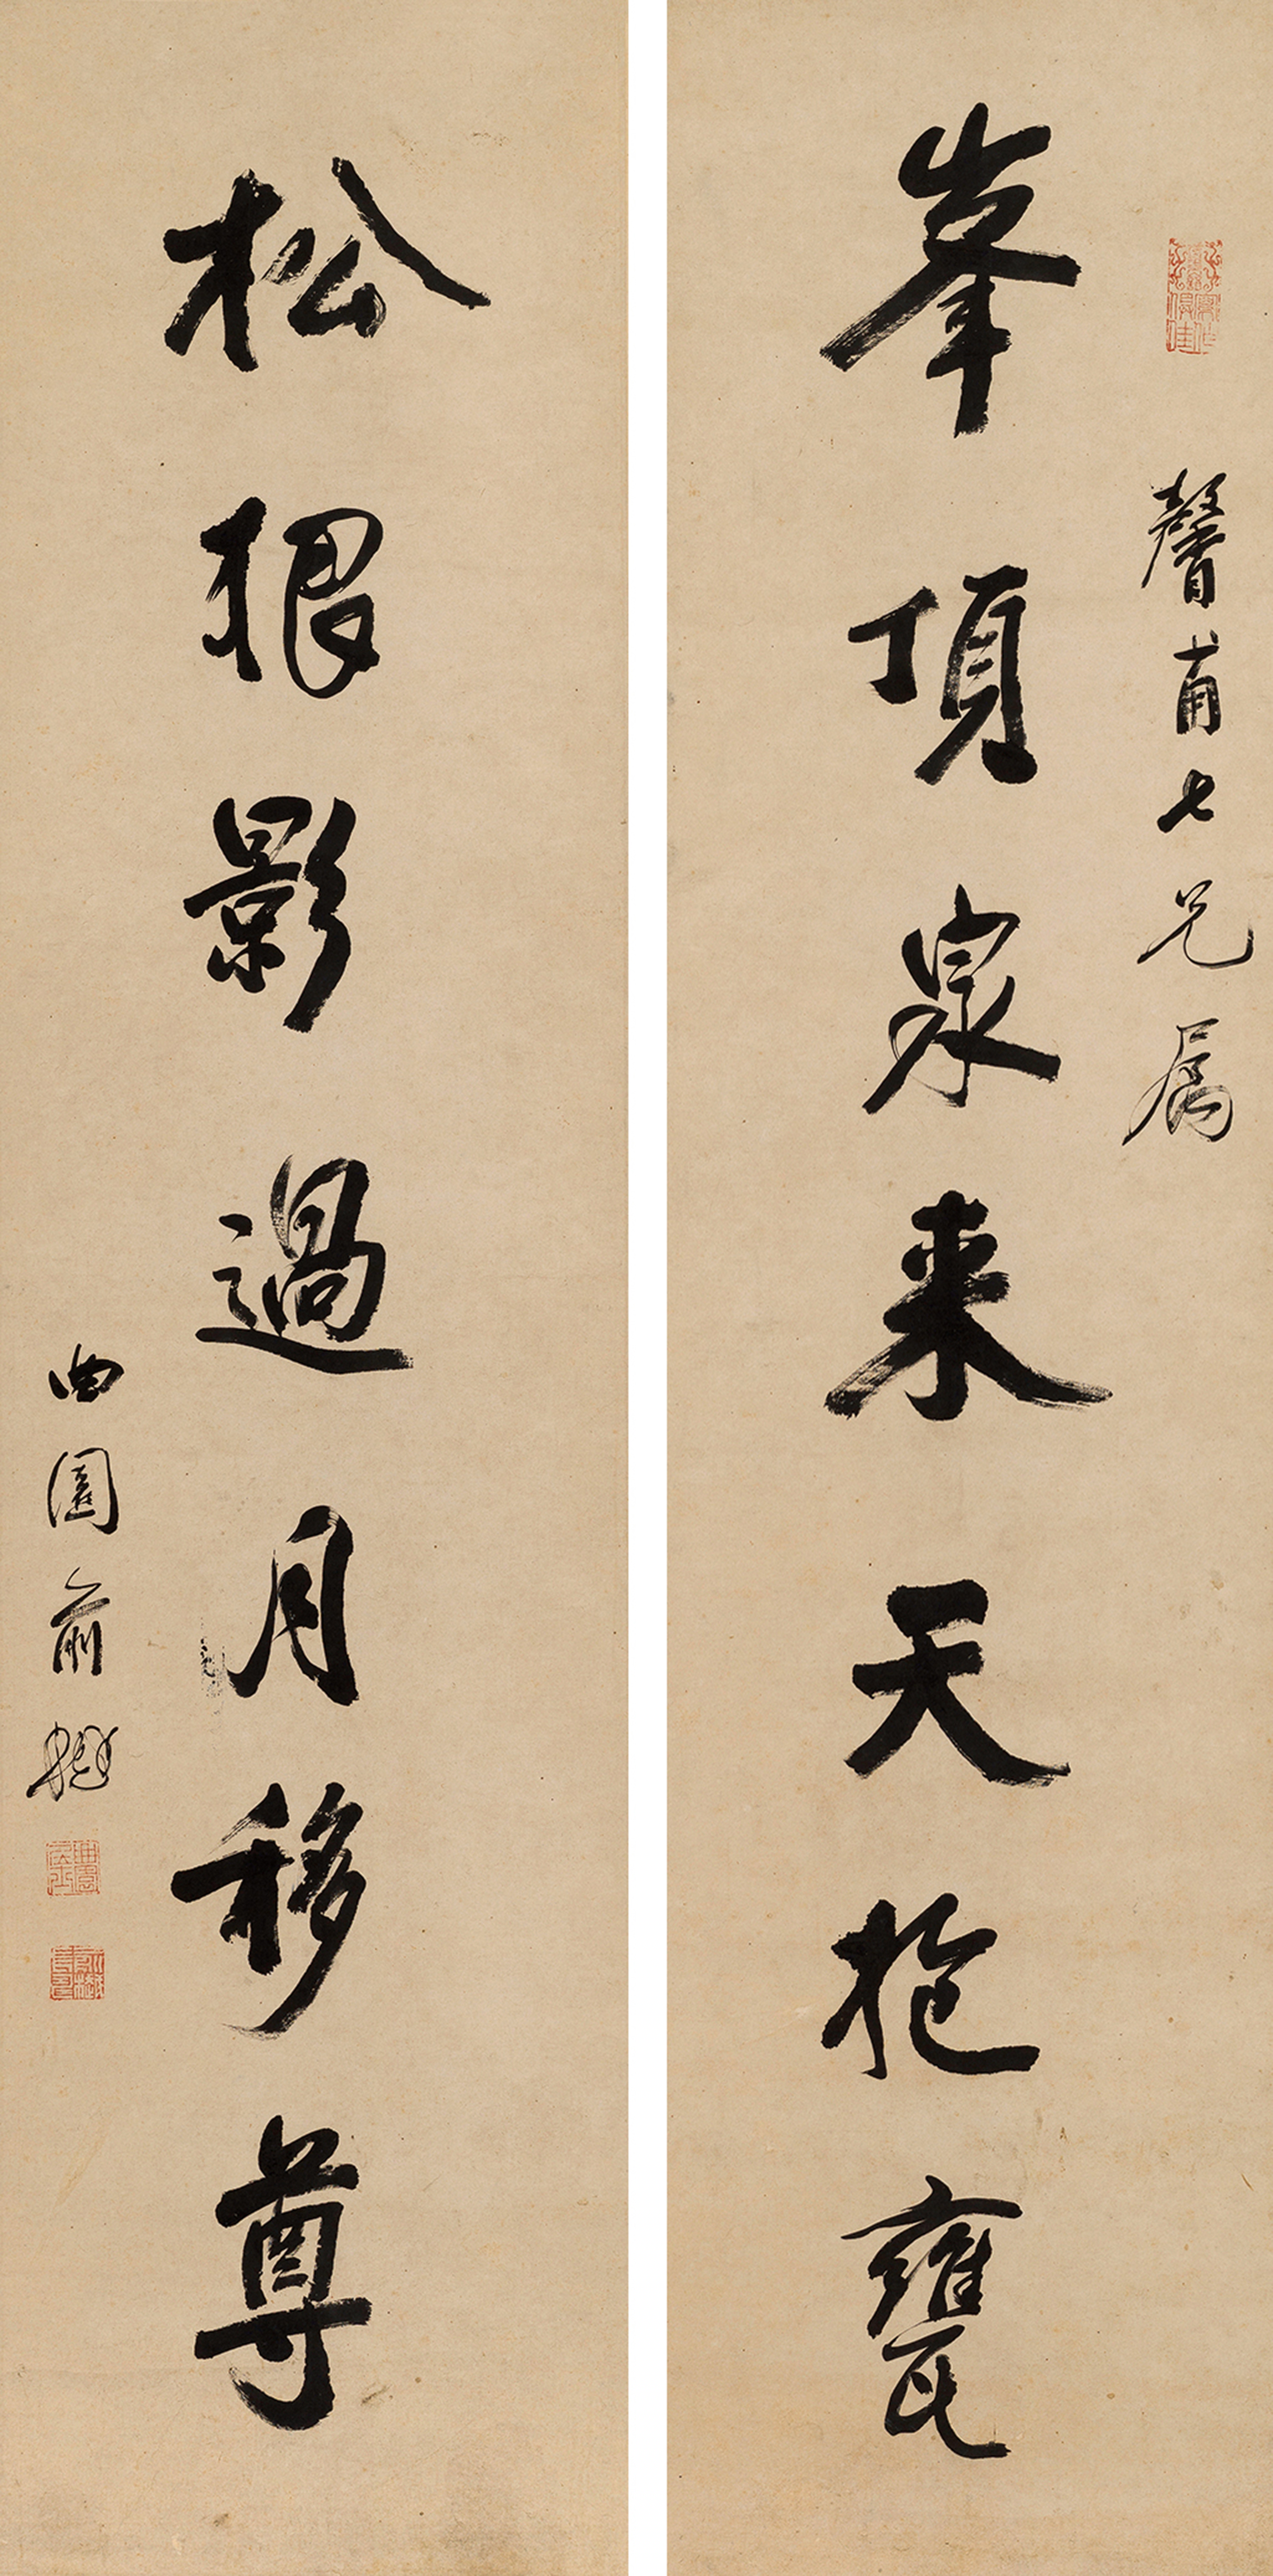 馨甫七兄属
峯頂泉来天抱甕
松根影過月移尊
曲園俞樾